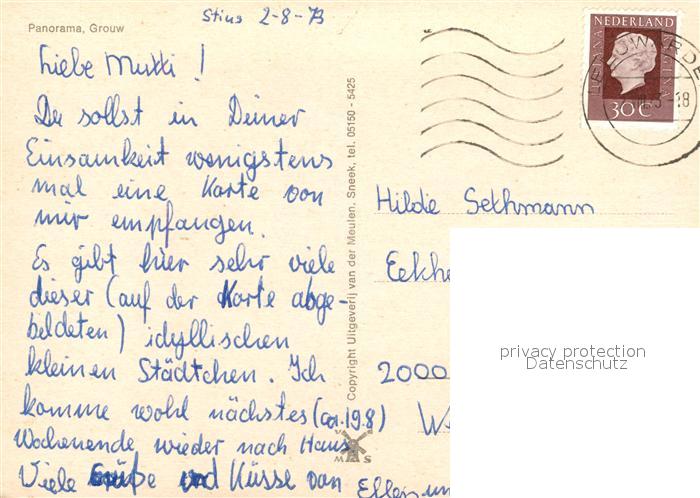 Stins 2-8-73
Panorama, Grouw
Liebe Mutti !
Du sollst in Deiner
Einsamkeit wenigstens
mal eine Karte von
mir empfangen.
Es gibt hier sehr viele
dieser (auf der Karte abge-
bildeten) idyllischen
kleinen Städtchen. Ich
komme wohl nächstes (ca. 19.8)
Wochenende wieder nach Haus
Viele Grüße und Küsse von
Ellen un
Copyright Uitgeverij van der Meulen, Sneek, tel. 05150 - 5425
V
M S
NEDERLAND
JULIANA REGINA
30C
LEEUWARDE
18
Hilde Sethmann
Eckhe
2000
W
privacy protection
Datenschutz